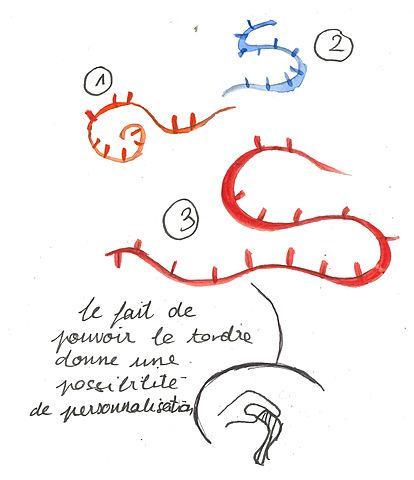 1
2
3
le fait de
pouvoir le tordre
donne une
possibilité
de personnalisation